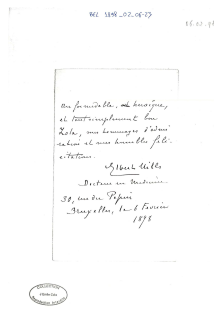 BEL 1898_02_06-23
06.02.98
Au formidable, héroïque,
et tout simplement bon
Zola, mes hommages d'admi
ration et mes humbles féli-
citations.
Docteur en Médecine
30, rue du Pépin
Bruxelles, le 6 février
1898
COLLECTION